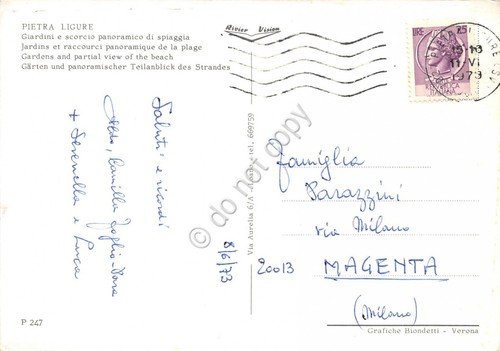 PIETRA LIGURE
Giardini e scorcio panoramico di spiaggia
Jardins et raccourci panoramique de la plage
Gardens and partial view of the beach
Gärten und panoramischer Teilanblick des Strandes
Rivier Vision
LIRE 25
19-13
11-VI
1973
Saluti e ricordi
Aldo, Camilla
+ Serenella e Luca
8/6/73
Via Aurelia 6/A
tel. 669759
do not copy
Famiglia
Parazzini
via Milano
20013 MAGENTA
(Milano)
P 247
Grafiche Biondetti - Verona